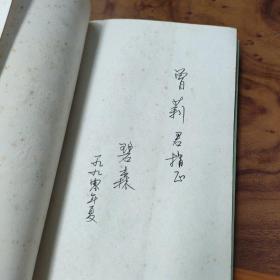 曾莉君指正
碧森
一九九零年夏